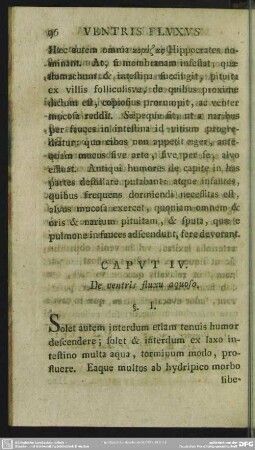 96 VENTRIS FLVXVS
Haec autem omnia Hippocrates no-
minant. At, si membranam infestat, quae
stomachum & intestina succingit, pituita
ex villis folliculisve, de quibus proxime
dictum est, copiosius prorumpit, ac venter
mucosa reddit. Saepeque fit, ut a naribus
per fauces in intestina id vitium progre-
diatur; quo cibos non appetit aeger, ante-
quam mucus sive arte, sive per se, alvo
effluat. Antiqui humores de capite in has
partes destillare putabant: atque infantes,
quibus frequens dormiendi necessitas est,
alvus mucosa exercet, quoniam omnem &
oris & narium pituitam, & sputa, quae e
pulmone in fauces adscendunt, fere devorant.
CAPVT IV.
De ventris fluxu aquoso.
§. I.
Solet autem interdum etiam tenuis humor
descendere; solet & interdum ex laxo in-
testino multa aqua, torminum modo, pro-
fluere. Eaque multos ab hydropico morbo
libe-